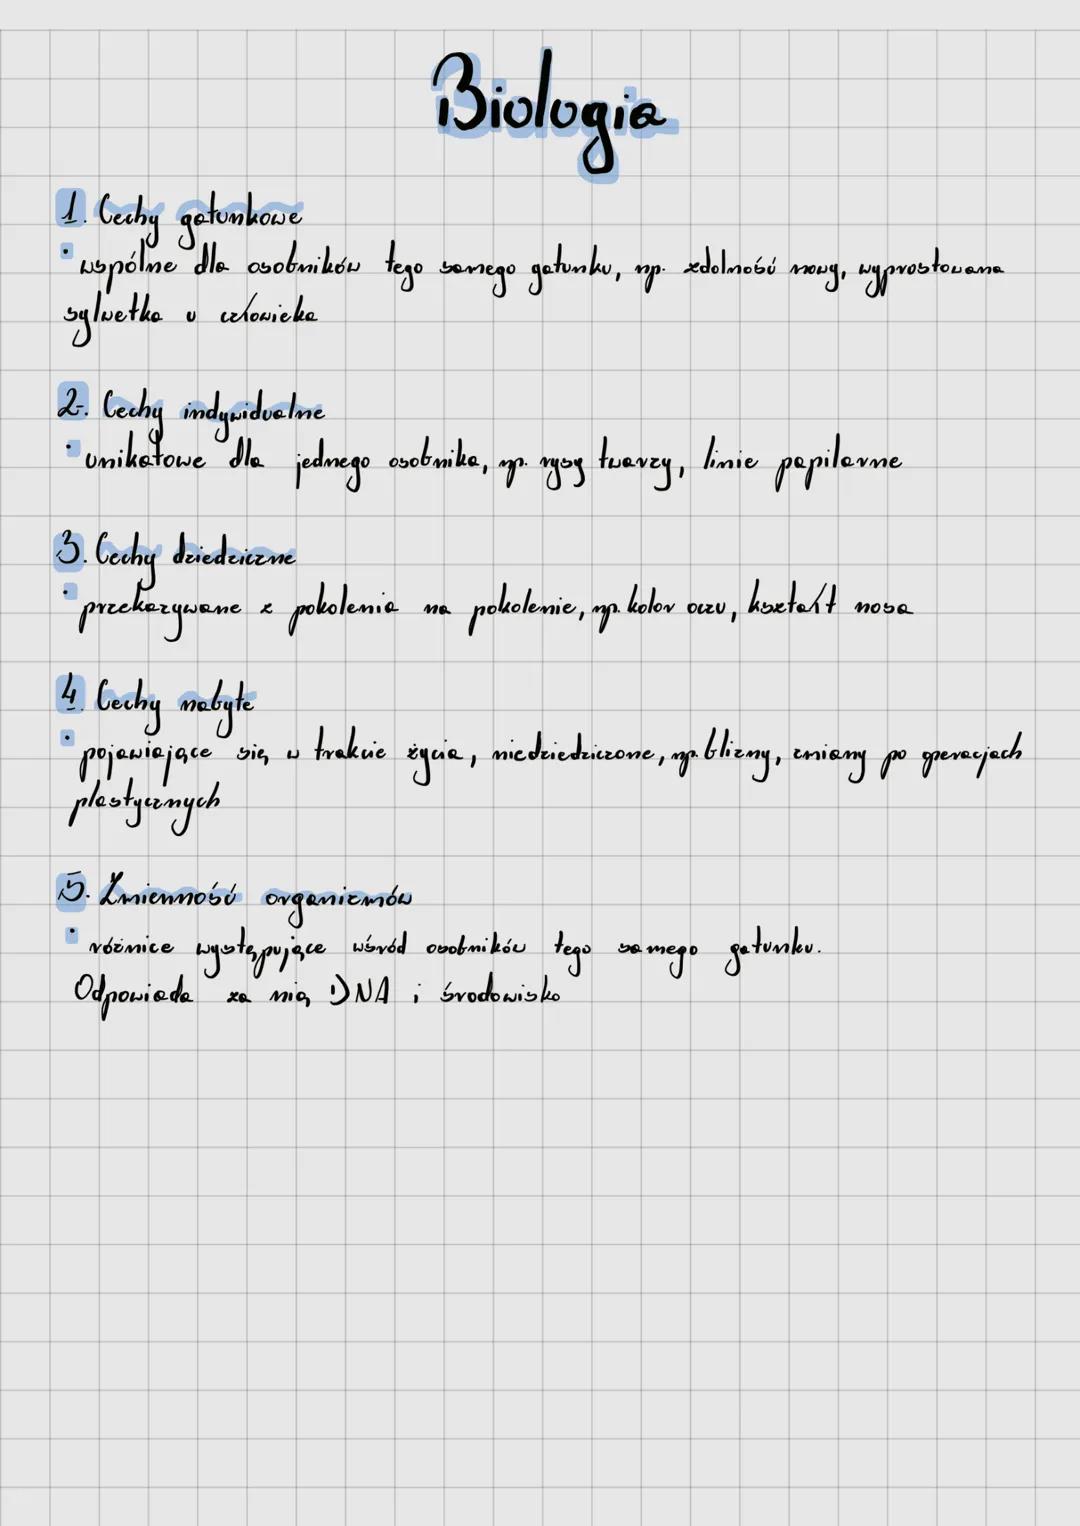 Biologia
1. Cechy gatunkowe
• wspólne dla osobników tego samego gatunku, np. zdolność mowy, wyprostowana
sylwetka u człowieka
2. Cechy indywidualne
• unikatowe dla jednego osobnika, np. rysy twarzy, linie papilarne
3. Cechy dziedziczne
• przekazywane z pokolenia na pokolenie, np. kolor oczu, kształt nosa
4. Cechy nabyte
• pojawiające się w trakcie życia, niedziedziczone, np. blizny, zmiany po operacjach
plastycznych
5. Zmienność organizmów
• różnice występujące wśród osobników tego samego gatunku.
Odpowiada za nią DNA i środowisko